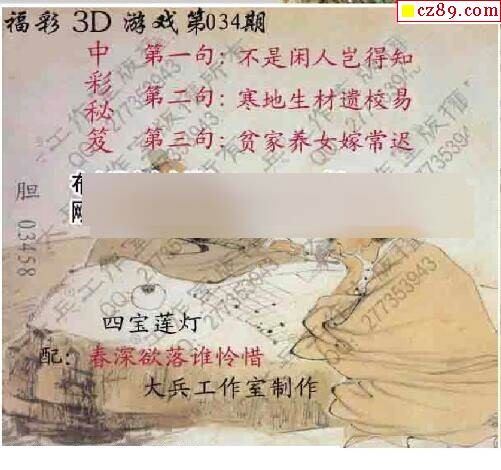 cz89.com
福彩 3D 游戏第034期
中彩秘笈
第一句：不是闲人岂得知
第二句：寒地生材遗校易
第三句：贫家养女嫁常迟
胆 03458
四宝莲灯
配：春深欲落谁怜惜
大兵工作室制作
大兵工作室版权所有
QQ:277353943